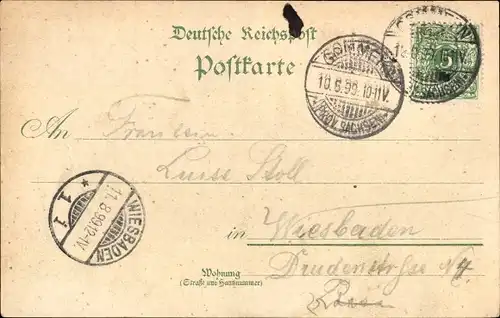 Deutsche Reichspost
Postkarte
GOMMERN
10.8.99. 10-11V.
(PROV. SACHSEN)
5
An Fräulein
Luise Stoll
in Wiesbaden
Drudenstrße No 4
Wohnung
(Straße und Hausnummer)
WIESBADEN
11.8.99.12-1V.
* 1 1